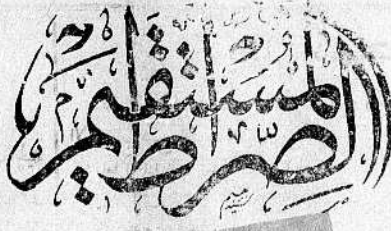 الصراط المستقيم